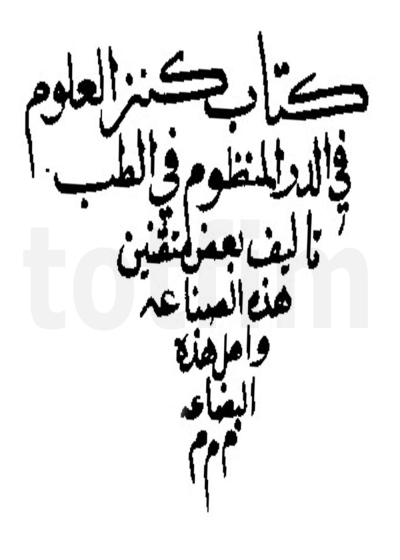 كتاب كنز العلوم
في الدر المنظوم في الطب
تاليف بعض متقنين
هذه الصناعه
واهل هذه
البضاعه
م م م